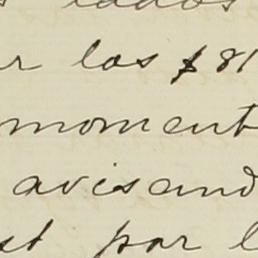 lados
r los $81
moment
avisand
st por l